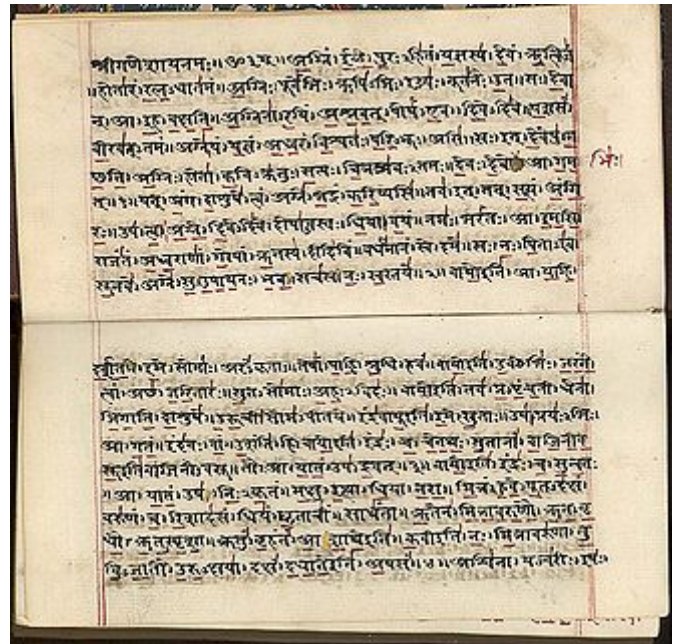 श्रीगणेशायनमः॥ॐ३म्॥अग्निं।ईळे।पुरःऽहितं।यज्ञस्य।देवं।ऋत्विजं
॥होतारं।रत्नऽधातमं॥अग्निः।पूर्वेभिः।ऋषिऽभिः।ईड्यः।नूतनैः।उत॥सः।देवा
न्।आ।इह।वक्षति॥अग्निना।रयिं।अश्नवत्।पोषं।एव।दिवेऽदिवे॥यशसं
वीरवत्ऽतमं॥अग्ने।यं।यज्ञं।अध्वरं।विश्वतः।परिऽभूः।असि॥सः।इत्।देवेषु।ग
च्छति॥अग्निः।होता।कविऽक्रतुः।सत्यः।चित्रश्रवःऽतमः॥देवः।देवे।आ।गम भिः।
त्॥१॥यत्।अंग।दाशुषे।त्वं।अग्ने।भद्रं।करिष्यसि॥तव।इत्।तत्।सत्यं।अंगि
रः॥उप।त्वा।अग्ने।दिवेऽदिवे।दोषाऽवस्तः।धिया।वयं॥नमः।भरंतः।आ।इमसि॥
राजंतं।अध्वराणां।गोपां।ऋतस्य।दीदिविं॥वर्धमानं।स्वे।दमे॥सः।नः।पिताऽइव
सूनवे।अग्ने।सुऽउपायनः।भव॥सचस्व।नः।स्वस्तये॥२॥वायोइति।आ।याहि।
दर्शत।इमे।सोमाः।अरंऽकृताः॥तेषां।पाहि।श्रुधि।हवं॥वायोइति।उक्थेभिः।जरंते।
त्वां।अच्छ।जरितारः॥सुतऽसोमाः।अहःऽविदः॥वायोइति।तव।प्रऽपृंचती।धेना।
जिगाति।दाशुषे॥उरूची।सोमऽपीतये॥इंद्रवायूइति।इमे।सुताः॥उप।प्रयःऽभिः।
आ।गतं॥इंदवः।वां।उशंति।हि॥वायोइति।इंद्रः।च।चेतथः।सुतानां।वाजिनीव
सूइतिवाजिनीवसू॥तौ।आ।यातं।उप।द्रवत्॥३॥वायोइति।इंद्रः।च।सुन्वतः
॥आ।यातं।उप।निःऽकृतं॥मक्षु।इत्था।धिया।नरा॥मित्रं।हुवे।पूतऽदक्षं।
वरुणं।च।रिशादसं॥धियं।घृताचीं॥साधंता॥ऋतेन।मित्रावरुणौ।ऋतऽवृ
धौ।ऋतऽस्पृशा॥क्रतुं।बृहंतं।आशाथेइति॥कवीइति।नः।मित्रावरुणा।तु
विऽजातौ।उरुऽक्षया॥दक्षं।दधातेइति।अपसं॥४॥अश्विना।यज्वरीः।इषः।